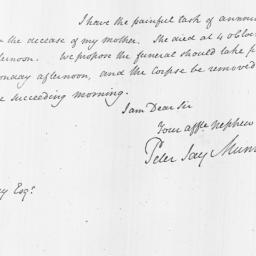 I have the painful task of announ
the decease of my mother. She died at 4 oClock
ternoon. We propose the funeral should take p
onday afternoon, and the Corpse be removed
e succeeding morning.
I am Dear Sir
Your affte. Nephew
Peter Jay Munro
y Esqr.